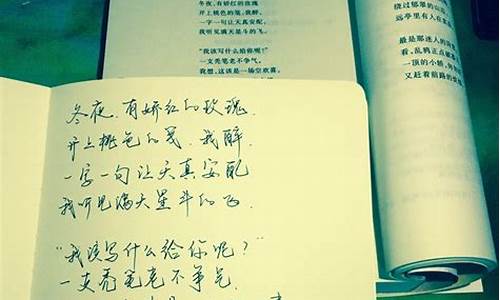 冬夜，有娇红的玫瑰
并上桃色的笺，我醉，
一字一句让天真安配，
我听见满天星斗的飞。
“我该写什么给你呢？”
一支秃笔老不争气。
我想，这该是一场空欢喜。
绕过郁郁的山
远亭里有人在
最是那迷人的
看，乱鸦正点破
一顶的小轿，
又赶着前路的
冬夜，有娇红的玫瑰，
并上桃色的笺，我醉，
一字一句让天真安配
我听见满天星斗的飞．
“我该写什么给你呢？”
一支秃笔老不争气．